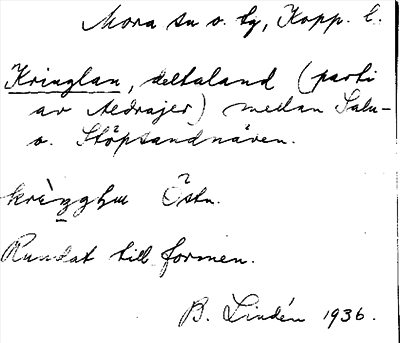 Mora sn o. tg, Kopp. l.
Kringlan, deltaland (parti
av Aldrajer) mellan Salu-
o. Stöpsandnären.
Östn.
Rundat till formen.
B. Lindén 1936.